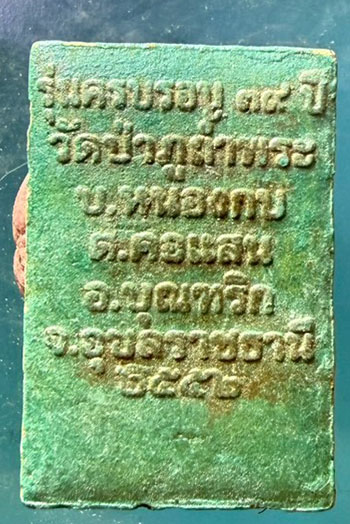 รุ่นครบรอบ ๓๙ ปี
วัดป่าภูถ้ำพระ
บ.หนองกบ
ต.คอแลน
อ.บุณฑริก
จ.อุบลราชธานี
๒๕๕๒